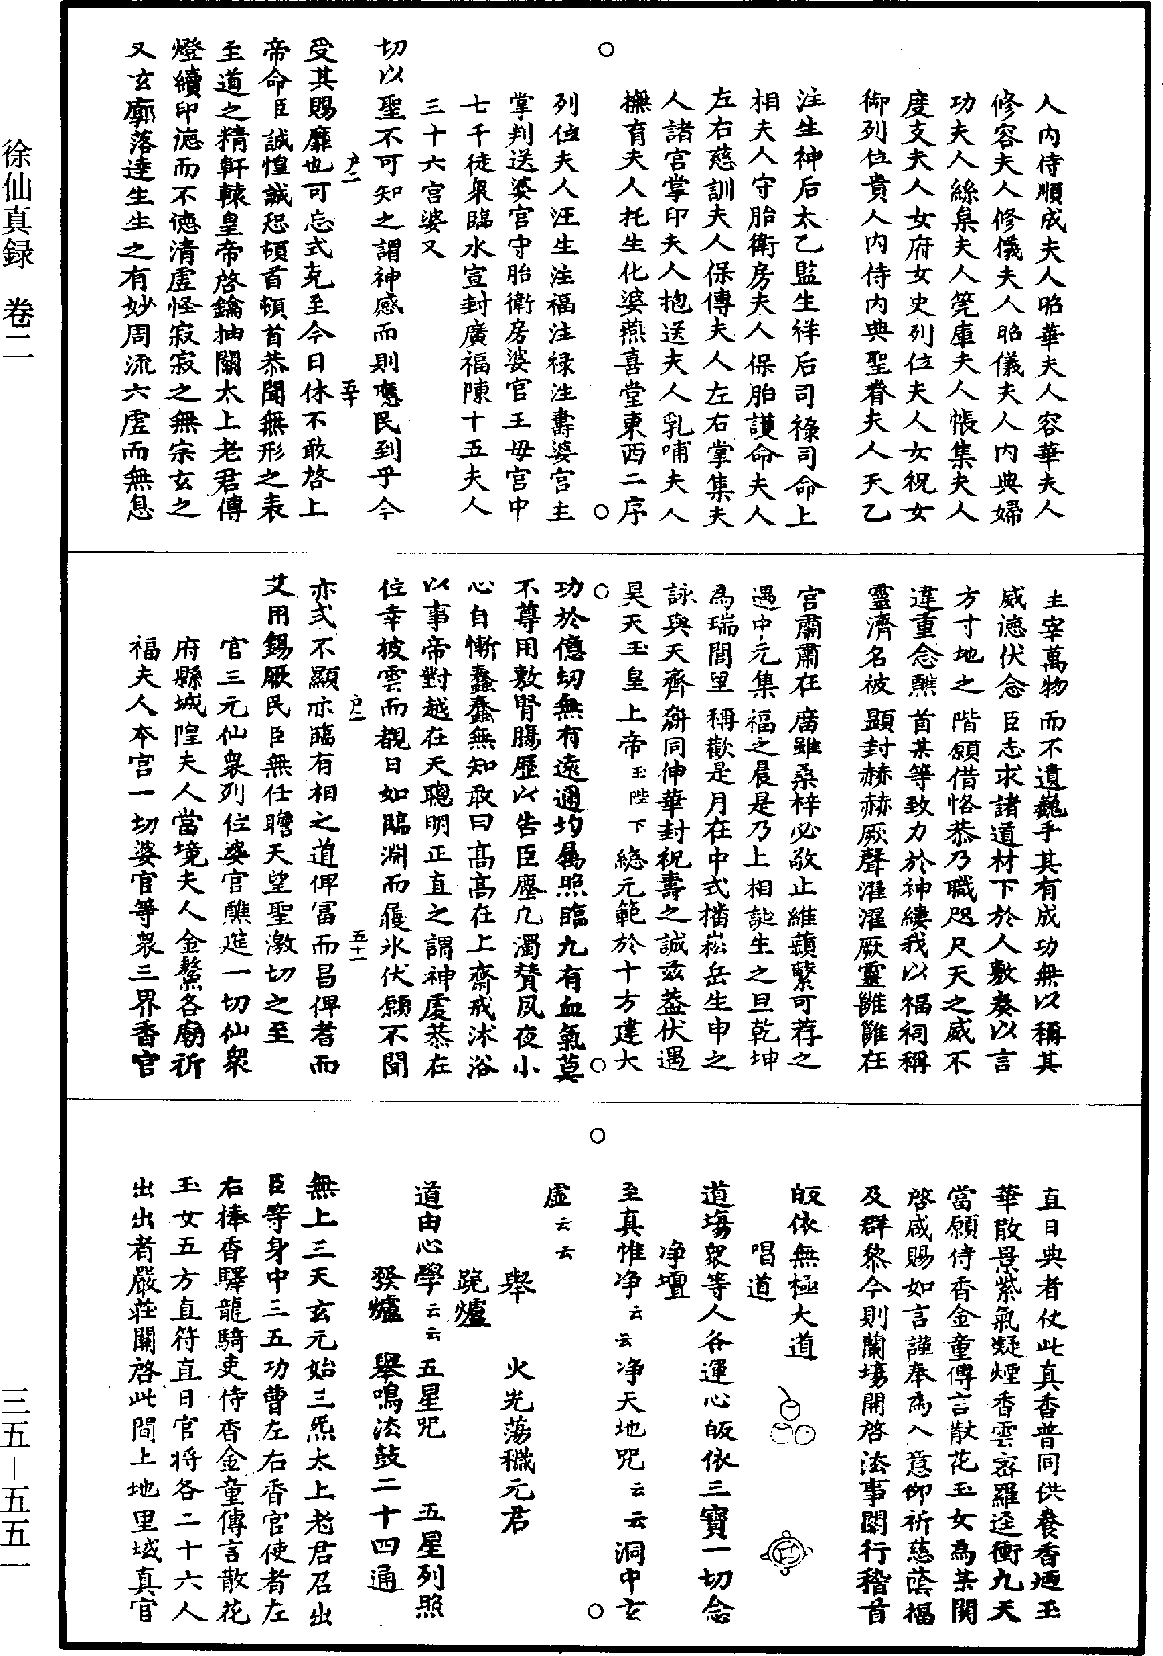 徐仙真録 卷二
三五—五五一
人內侍順成夫人昭華夫人容華夫人
修容夫人修儀夫人昭儀夫人內典婦
功夫人絲枲夫人筦庫夫人帳集夫人
度支夫人女府女史列位夫人女祝女
御列位貴人內侍內典聖眷夫人天乙
注生神后太乙監生祥后司祿司命上
相夫人守胎衛房夫人保胎護命夫人
左右慈訓夫人保傳夫人左右掌集夫
人諸宮掌印夫人抱送夫人乳哺夫人
撫育夫人托生化婆燕喜堂東西二序
列位夫人注生注福注祿注壽婆官主
掌判送婆官守胎衛房婆官王母宮中
七千徒衆臨水宣封廣福陳十五夫人
三十六宮婆又
切以聖不可知之謂神感而則應民到乎今
受其賜靡也可忘式克至今日休不敢啓上
帝命臣誠惶誠恐頓首頓首恭聞無形之表
至道之精軒轅皇帝啓鑰抽關太上老君傳
燈續印德而不德清虛怪寂寂之無宗玄之
又玄廓落達生生之有妙周流六虛而無息
五十
主宰萬物而不遺巍乎其有成功無以稱其
威德伏念臣志求諸道材下於人敷奏以言
方寸地之階願借恪恭乃職咫尺天之威不
違重念醮首某等致力於神縷我以福祠稱
靈濟名被顯封赫赫厥聲濯濯厥靈雝雝在
宮肅肅在廟雖桑梓必敬止維蘋蘩可荐之
遇中元集福之晨是乃上相誕生之旦乾坤
為瑞閭里稱歡是月在中式檔崧岳生申之
詠與天齊齡同伸華封祝壽之誠茲葢伏遇
昊天玉皇上帝玉陛下總元範於十方建大
功於億刼無有遠通均屬照臨九有血氣莫
不尊用敷腎腸歷以告臣塵凡濁贅夙夜小
心自慚蠢蠢無知敢曰高高在上齋戒沐浴
以事帝對越在天聰明正直之謂神虔恭在
位幸披雲而覩日如臨淵而履氷伏願不聞
亦式不顯亦臨有相之道俾富而昌俾耆而
艾用錫厥民臣無任瞻天望聖激切之至
官三元仙衆列位婆官醮筵一切仙衆
府縣城隍夫人當境夫人金鰲各廟祈
福夫人本宮一切婆官等衆三界香官
五十一
直日典者仗此真香普同供養香迎玉
華散景紫氣凝煙香雲密羅逕衝九天
當願侍香金童傳言散花玉女為某関
啓咸賜如言謹奉為入意仰祈慈蔭福
及群黎今則蘭塲開啓法事關行稽首
皈依無極大道
唱道
道塲衆等人各運心皈依三寶一切念
净壇
至真惟净云云净天地咒云云洞中玄
虛云云
舉 火光蕩穢元君
跪爐
道由心學云云五星咒 五星列照
發爐 舉鳴法鼓二十四通
無上三天玄元始三炁太上老君召出
臣等身中三五功曹左右香官使者左
右捧香驛龍騎吏侍香金童傳言散花
玉女五方直符直日官將各二十六人
出出者嚴莊關啓此間上地里域真官